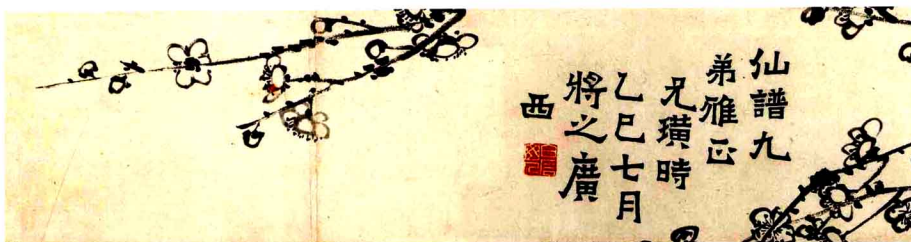 仙譜九
弟雅正
兄璜時
乙巳七月
將之廣
西